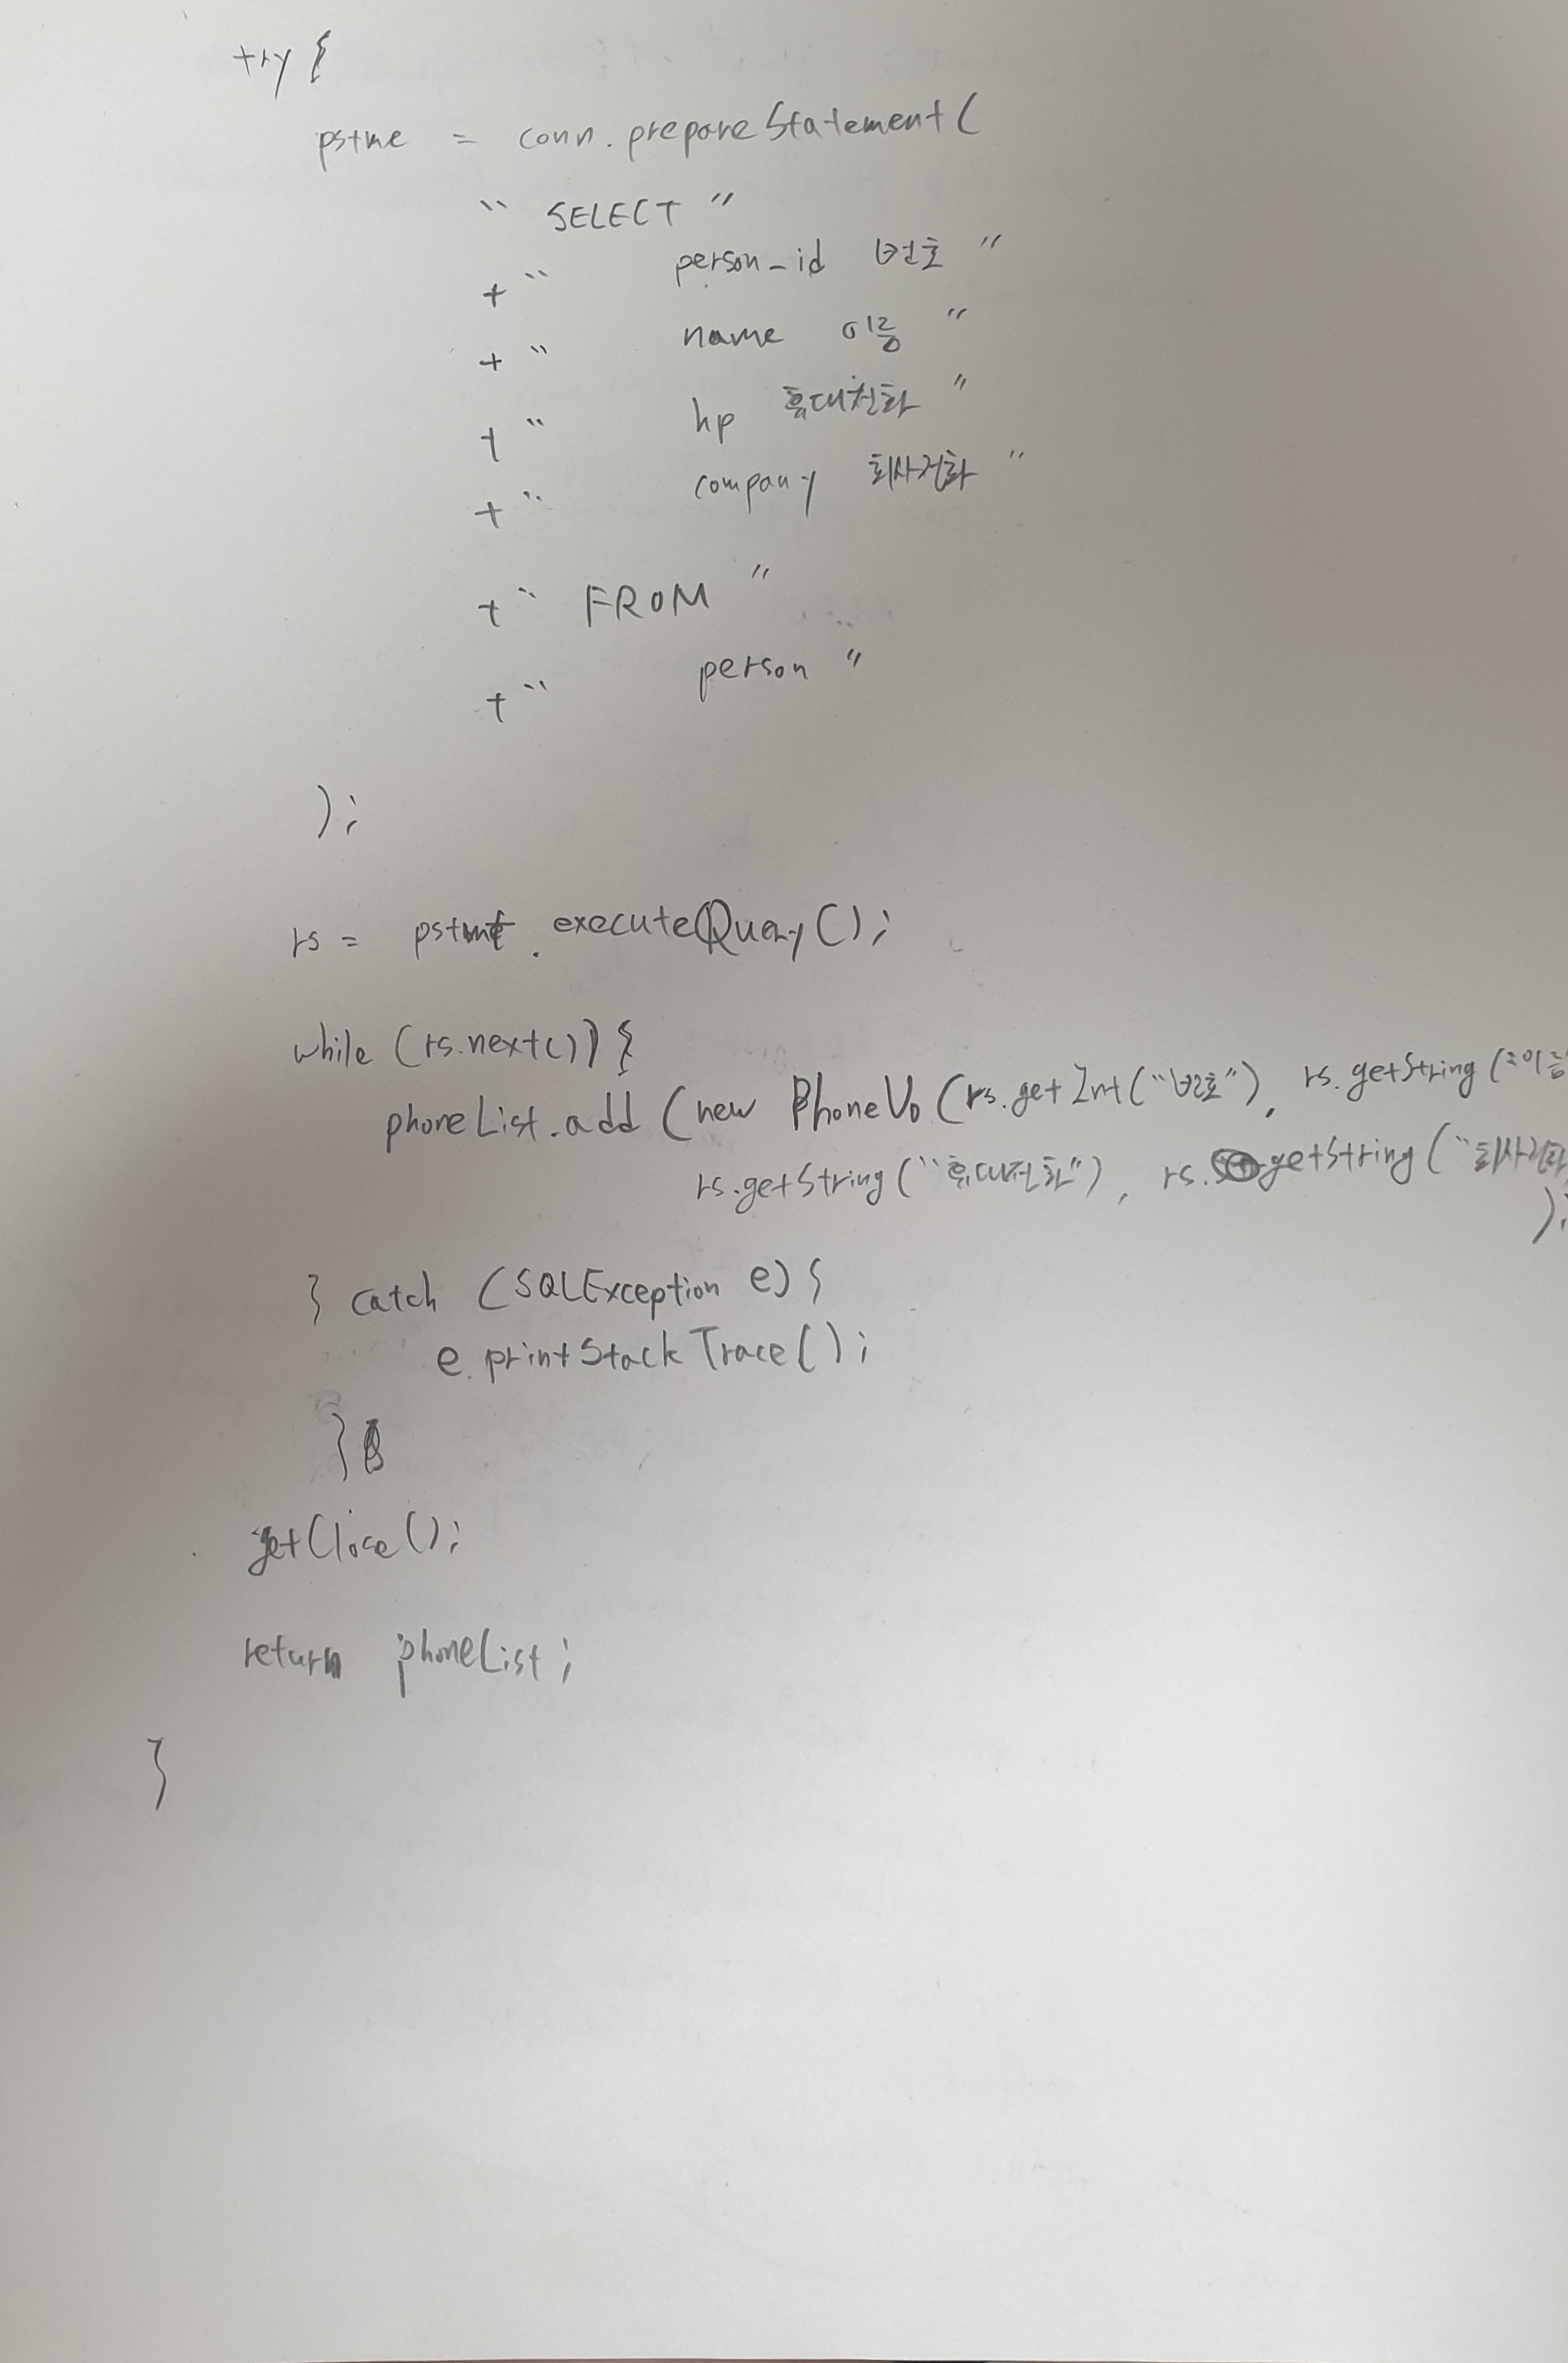 try {
pstme = conn.prepareStatement(
" SELECT "
+ " person_id 번호 "
+ " name 이름 "
+ " hp 휴대전화 "
+ " company 회사전화 "
+ " FROM "
+ " person "
);
rs = pstmt.executeQuery();
while (rs.next()) {
phoneList.add (new PhoneVo (rs.getInt("번호"), rs.getString("이름
rs.getString("휴대전화"), rs.getString("회사전화
);
} catch (SQLException e) {
e.printStackTrace();
}
getClose();
return phoneList;
}